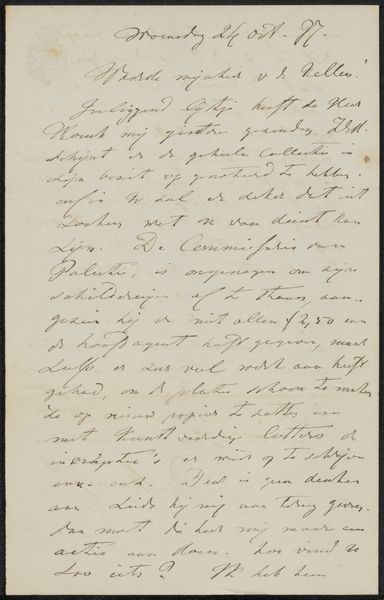 Woensdag 24 Oct. 77.
Waarde mijnheer v d Kellen!
Inliggend lijstje heeft de Heer
mij gisteren gezonden. Het
schijnt er de geheele collectie in
zijn bezit op genoteerd te hebben.
enfin U zal er zeker dat uit
zoeken wat U van dienst kan
zijn. De Commissaris van
Politie, is ongenegen om zijn
schilderijen af te staan, aan-
gezien hij er niet alleen f 2,50 aan
de hoofdagent heeft gegeven, maar
er zeer veel werk aan heeft
gehad, om de platen schoon te maken
ze op nieuw papier te zetten en
met kunstvaardige letters de
er weder op te schrijven
enz. enz. Daar is geen denken
aan. Liefst hij mij aan terug geven.
dan moet de heer mij maar een
actie aan doen. hoe vind U
zoo iets? Ik heb hem